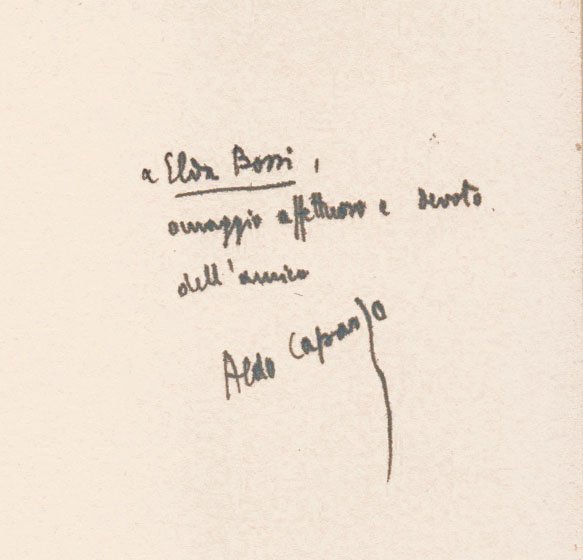 a Elda Bossi,
omaggio affettuoso e devoto
dell'amico
Aldo Capasso